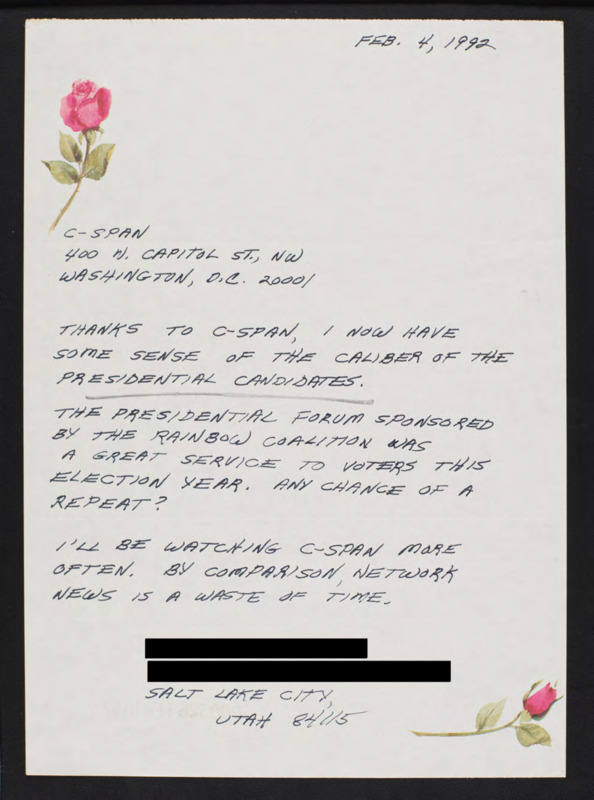 FEB. 4, 1992
C-SPAN
400 N. CAPITOL ST., NW
WASHINGTON, D.C. 20001
THANKS TO C-SPAN, I NOW HAVE
SOME SENSE OF THE CALIBER OF THE
PRESIDENTIAL CANDIDATES.
THE PRESIDENTIAL FORUM SPONSORED
BY THE RAINBOW COALITION WAS
A GREAT SERVICE TO VOTERS THIS
ELECTION YEAR. ANY CHANCE OF A
REPEAT?
I'LL BE WATCHING C-SPAN MORE
OFTEN. BY COMPARISON, NETWORK
NEWS IS A WASTE OF TIME.
SALT LAKE CITY,
UTAH 84115